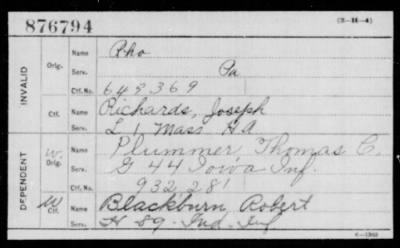 876794
(3-H-4)
INVALID
Orig.
Name Rho
Serv. Pa
Ctf. No. 649369
Ctf.
Name Richards, Joseph
Serv. L 1 Mass. H A
DEPENDENT
W. Orig.
Name Plummer, Thomas C.
Serv. G 44 Iowa Inf.
Ctf. No. 932 281
W Ctf.
Name Blackburn Robert
Serv. H 89 Ind. Inf